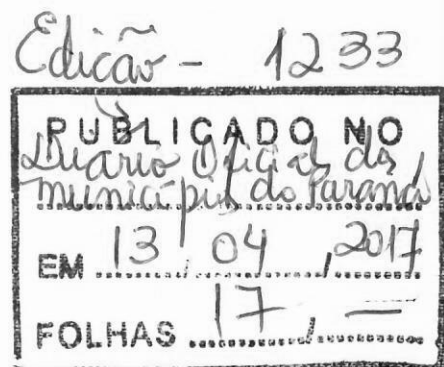 Edição - 1233
PUBLICADO NO
Diário Oficial dos
municípios do Paraná
EM 13 / 04 / 2017
FOLHAS 17 / —